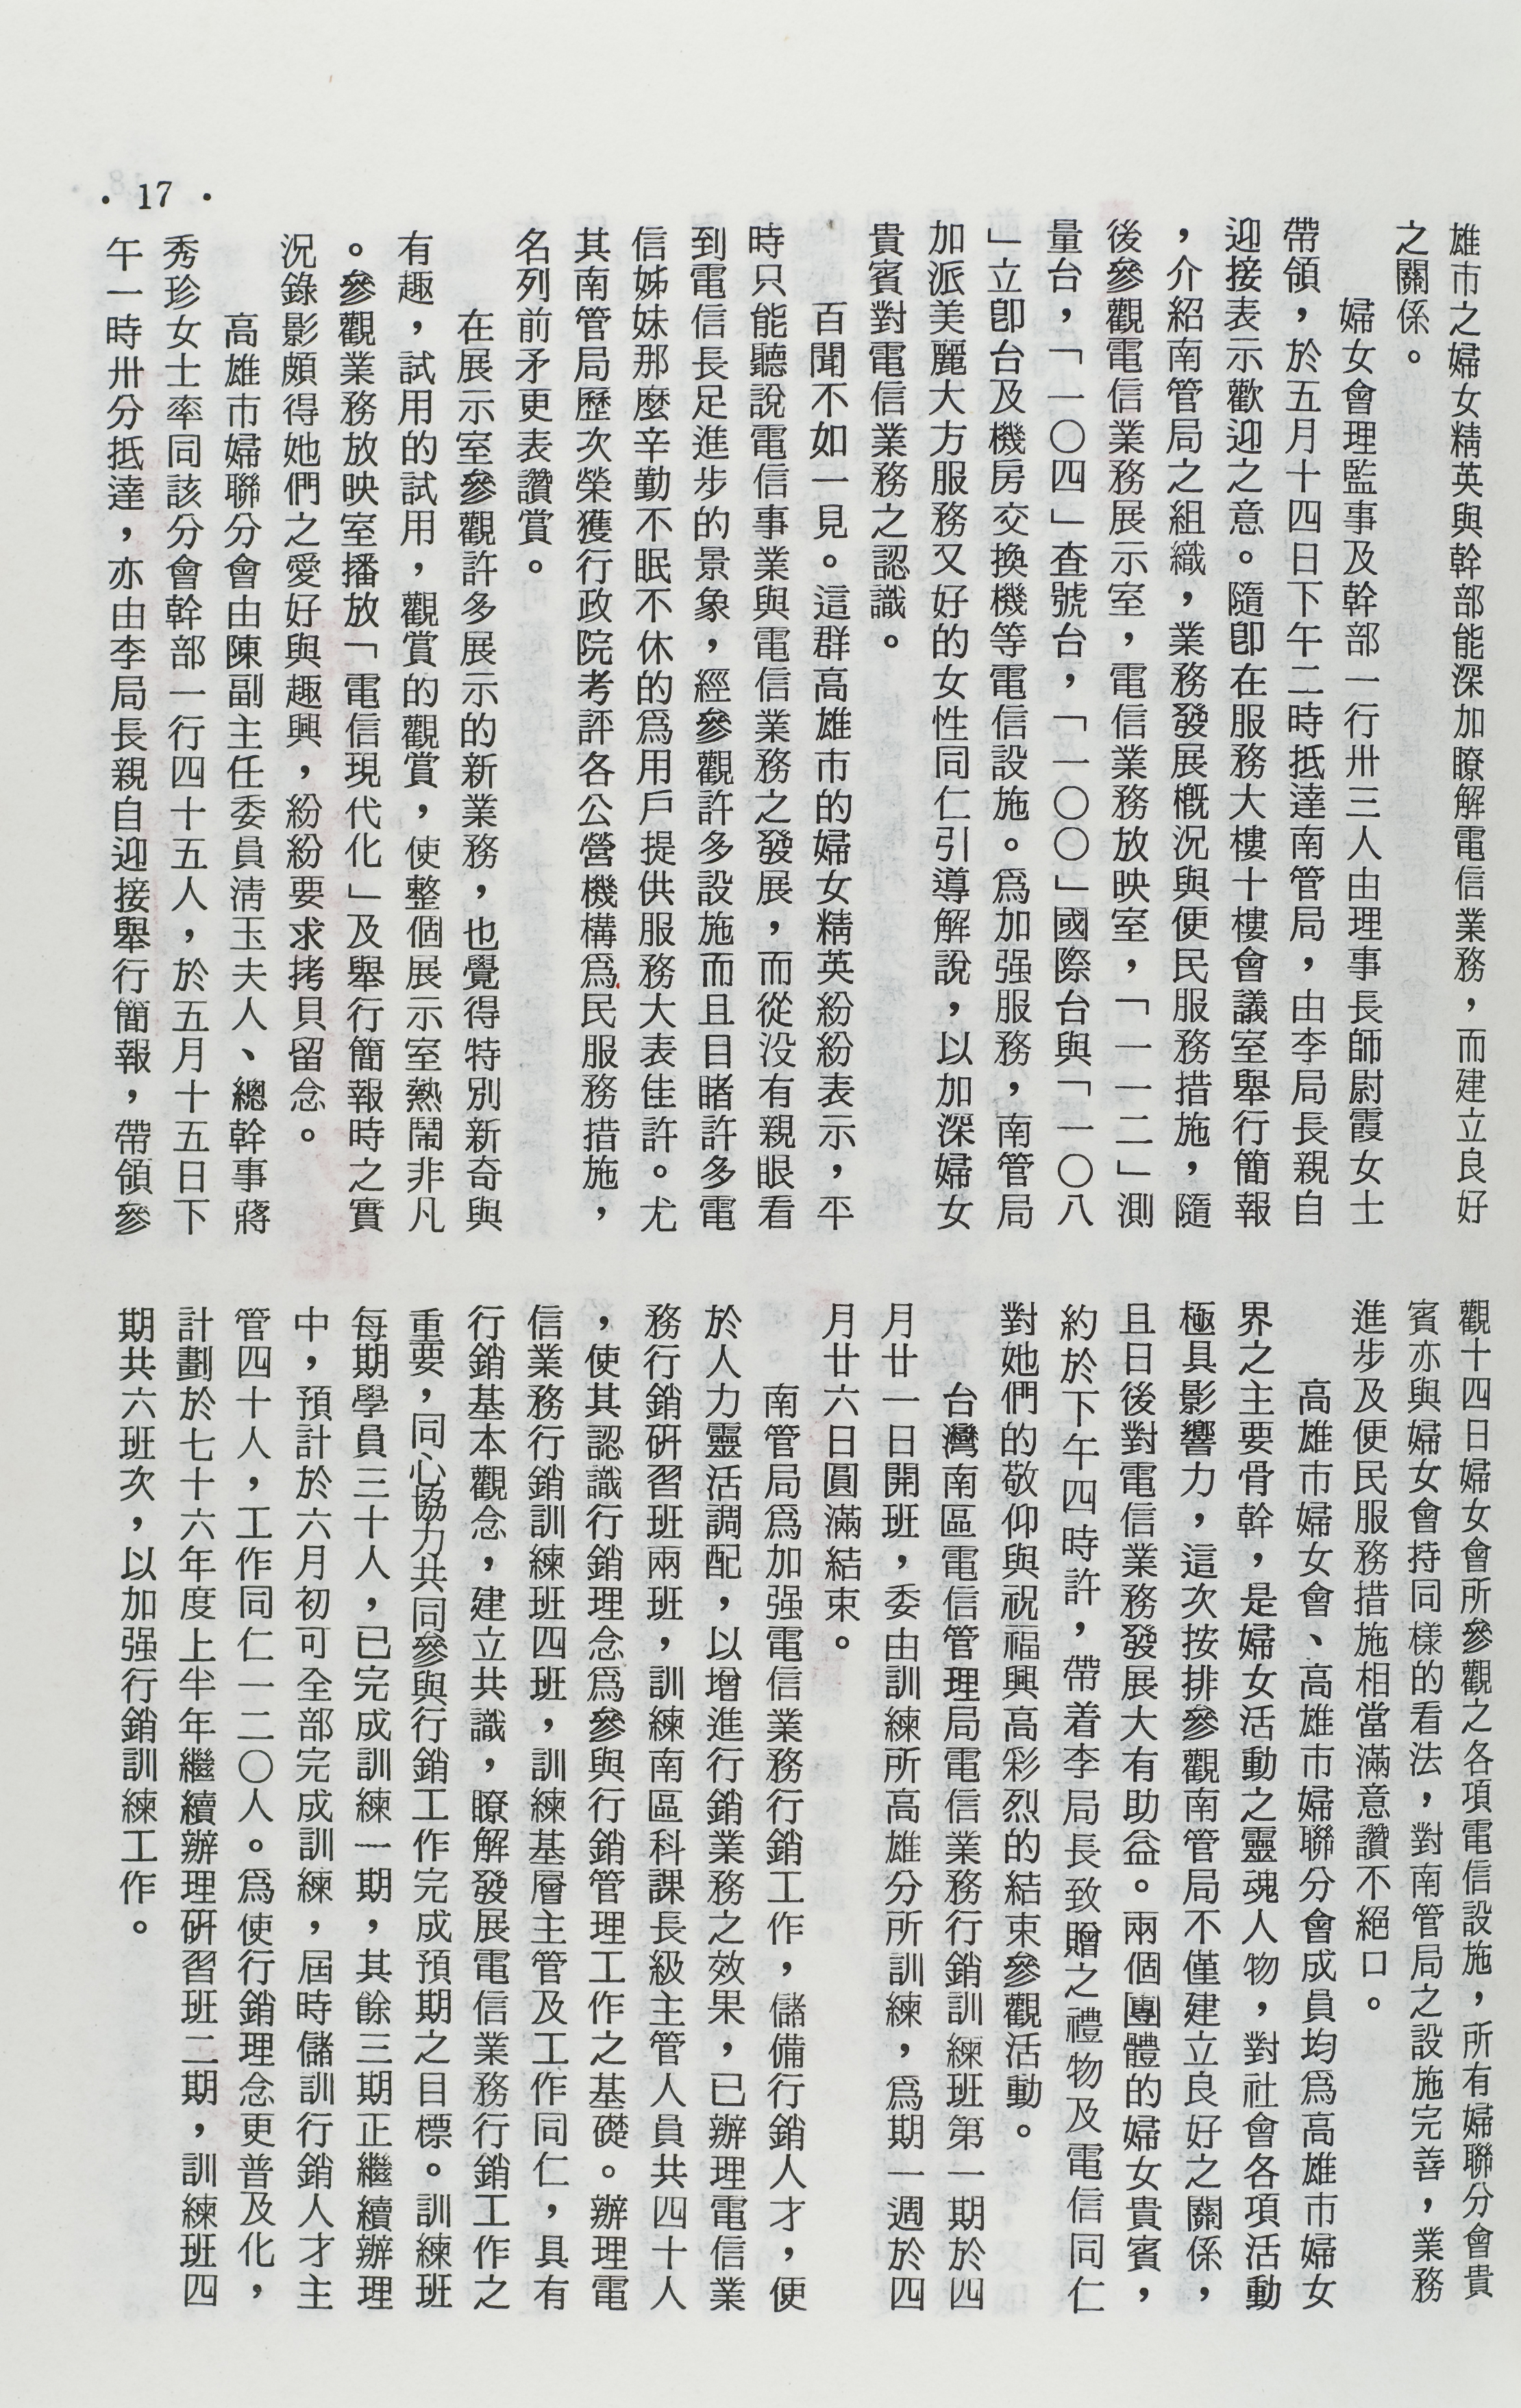 雄市之婦女精英與幹部能深加瞭解電信業務，而建立良好
之關係。
婦女會理監事及幹部一行卅三人由理事長師尉霞女士
帶領，於五月十四日下午二時抵達南管局，由李局長親自
迎接表示歡迎之意。隨卽在服務大樓十樓會議室舉行簡報
，介紹南管局之組織，業務發展槪況與便民服務措施，隨
後參觀電信業務展示室，電信業務放映室，「一一二」測
量台，「一〇四」查號台，「一〇〇」國際台與「一〇八
」立卽台及機房交換機等電信設施。爲加强服務，南管局
加派美麗大方服務又好的女性同仁引導解說，以加深婦女
貴賓對電信業務之認識。
百聞不如一見。這群高雄市的婦女精英紛紛表示，平
時只能聽說電信事業與電信業務之發展，而從没有親眼看
到電信長足進步的景象，經參觀許多設施而且目睹許多電
信姊妹那麼辛勤不眠不休的爲用戶提供服務大表佳許。尤
其南管局歷次榮獲行政院考評各公營機構爲民服務措施，
名列前矛更表讚賞。
在展示室參觀許多展示的新業務，也覺得特別新奇與
有趣，試用的試用，觀賞的觀賞，使整個展示室熱鬧非凡
。參觀業務放映室播放「電信現代化」及舉行簡報時之實
況錄影頗得她們之愛好與趣興，紛紛要求拷貝留念。
高雄市婦聯分會由陳副主任委員淸玉夫人、總幹事蔣
秀珍女士率同該分會幹部一行四十五人，於五月十五日下
午一時卅分抵達，亦由李局長親自迎接舉行簡報，帶領參
觀十四日婦女會所參觀之各項電信設施，所有婦聯分會貴
賓亦與婦女會持同樣的看法，對南管局之設施完善，業務
進步及便民服務措施相當滿意讚不絕口。
高雄市婦女會、高雄市婦聯分會成員均爲高雄市婦女
界之主要骨幹，是婦女活動之靈魂人物，對社會各項活動
極具影響力，這次按排參觀南管局不僅建立良好之關係，
且日後對電信業務發展大有助益。兩個團體的婦女貴賓，
約於下午四時許，帶着李局長致贈之禮物及電信同仁
對她們的敬仰與祝福興高彩烈的結束參觀活動。
台灣南區電信管理局電信業務行銷訓練班第一期於四
月廿一日開班，委由訓練所高雄分所訓練，爲期一週於四
月廿六日圓滿結束。
南管局爲加强電信業務行銷工作，儲備行銷人才，便
於人力靈活調配，以增進行銷業務之效果，已辦理電信業
務行銷研習班兩班，訓練南區科課長級主管人員共四十人
，使其認識行銷理念爲參與行銷管理工作之基礎。辦理電
信業務行銷訓練班四班，訓練基層主管及工作同仁，具有
行銷基本觀念，建立共識，瞭解發展電信業務行銷工作之
重要，同心協力共同參與行銷工作完成預期之目標。訓練班
每期學員三十人，已完成訓練一期，其餘三期正繼續辦理
中，預計於六月初可全部完成訓練，屆時儲訓行銷人才主
管四十人，工作同仁一二〇人。爲使行銷理念更普及化，
計劃於七十六年度上半年繼續辦理研習班二期，訓練班四
期共六班次，以加强行銷訓練工作。
· 17 ·